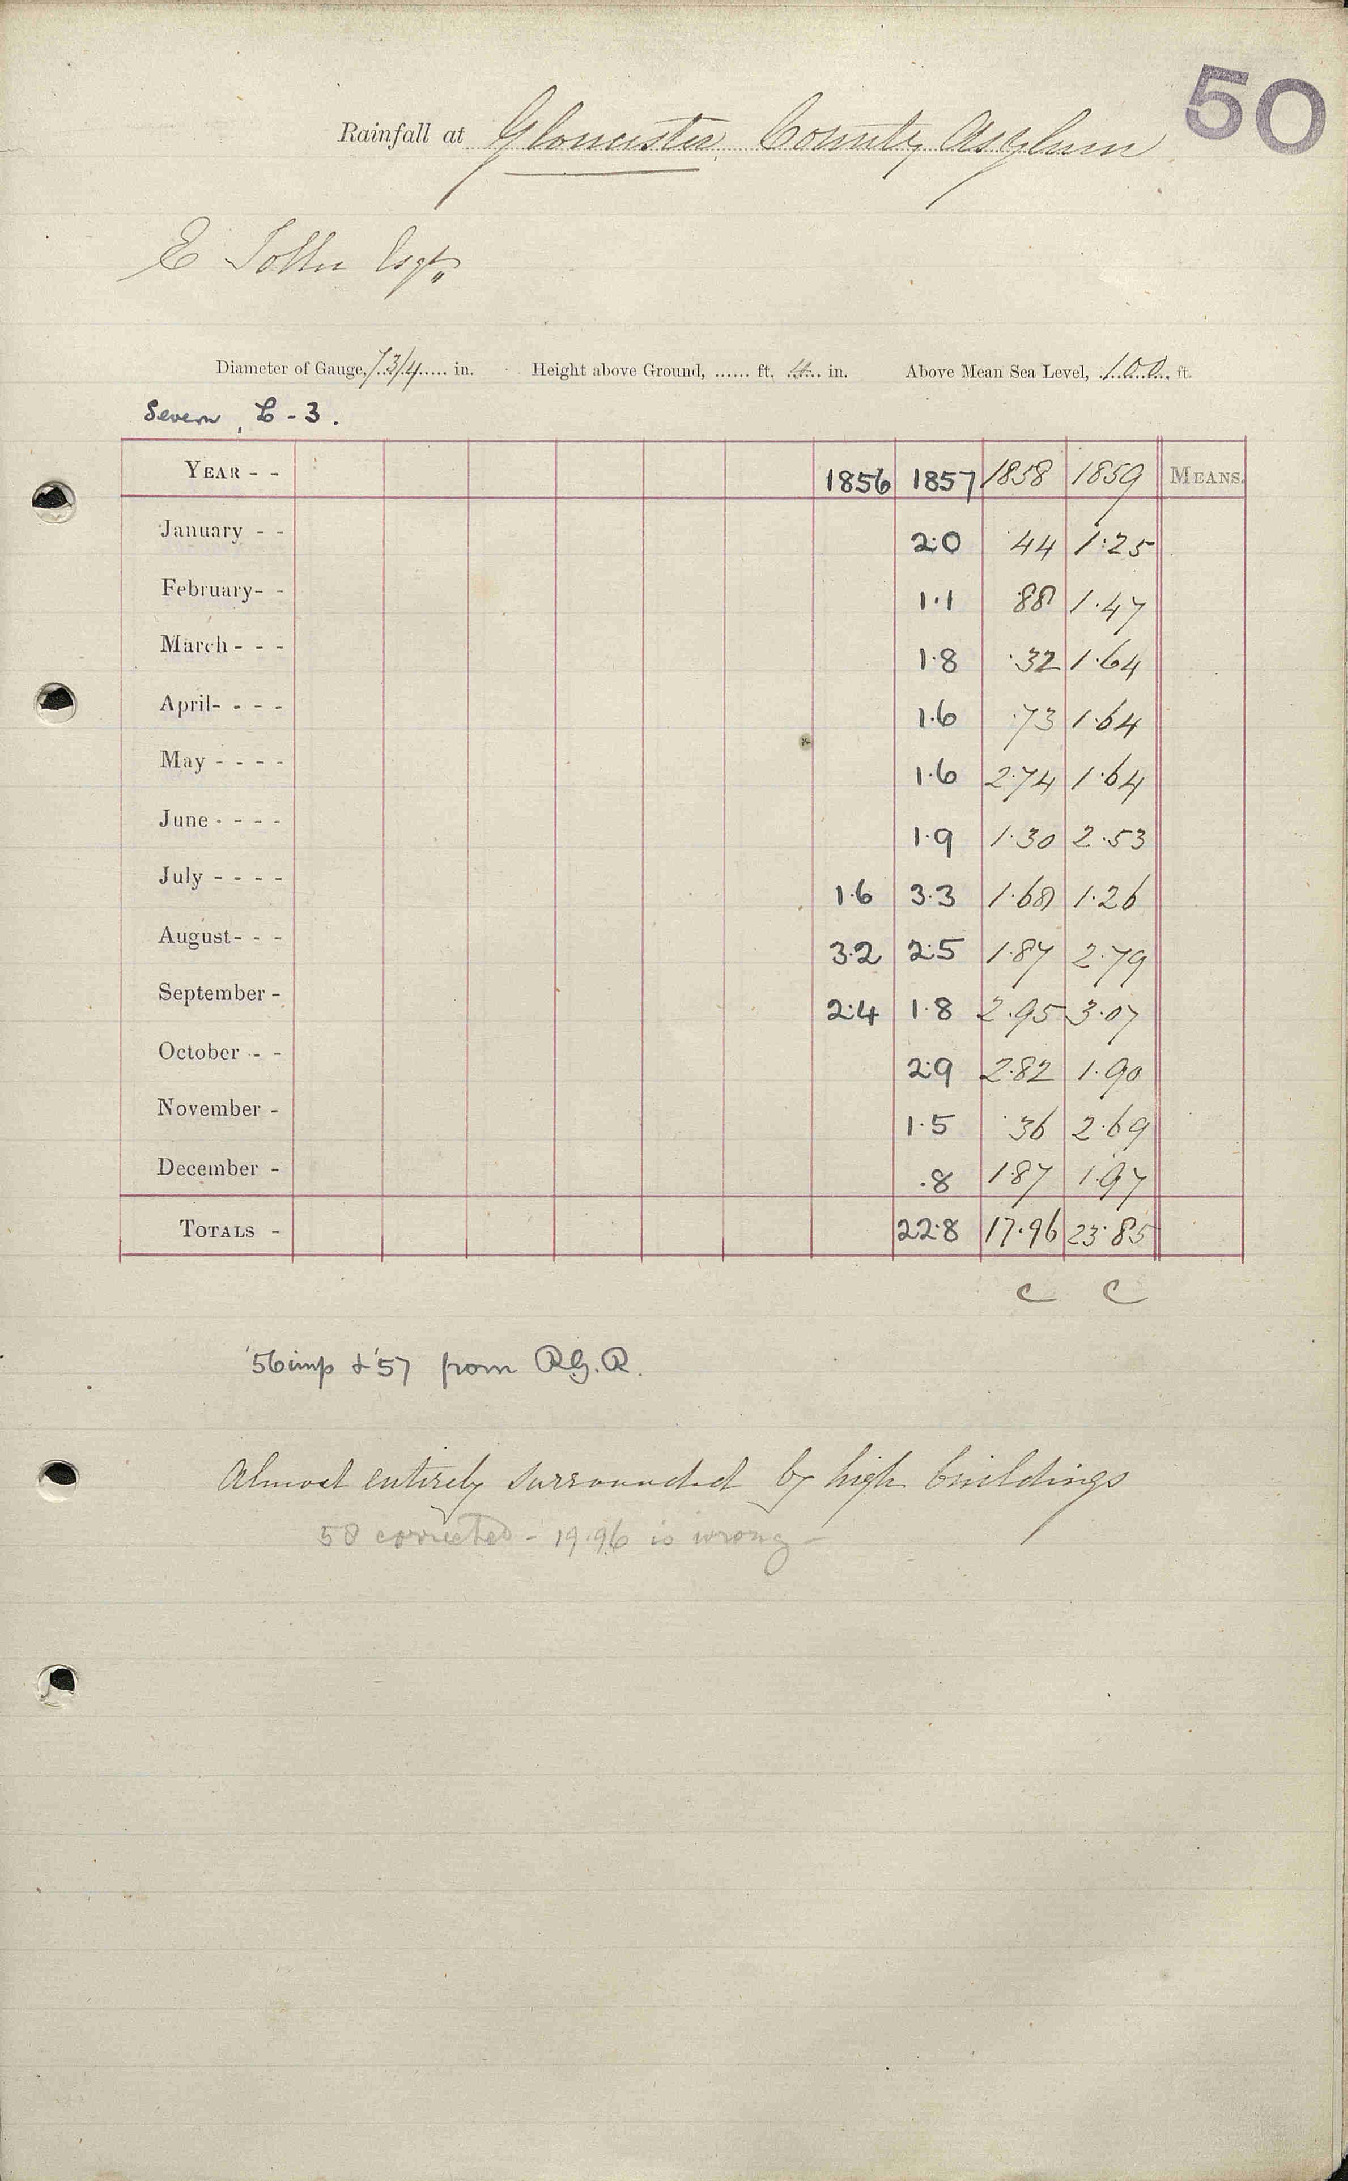 50
Rainfall at Gloucester County Asylum
E Toller Esqr.
Diameter of Gauge, 7 3/4 in. Height above Ground, ...... ft. 4 in. Above Mean Sea Level, 100 ft.
Severn, L - 3.
YEAR - - 1856 1857 1858 1859 MEANS.
January - - 2.0 .44 1.25
February- - 1.1 .88 1.47
March - - - 1.8 .32 1.64
April- - - - 1.6 .73 1.64
May - - - - 1.6 2.74 1.64
June - - - - 1.9 1.30 2.53
July - - - - 1.6 3.3 1.68 1.26
August- - - 3.2 2.5 1.87 2.79
September - 2.4 1.8 2.95 3.07
October - - 2.9 2.82 1.90
November - 1.5 .36 2.69
December - .8 1.87 1.97
TOTALS - 22.8 17.96 23.85
C C
'56 imp & '57 from R.G.R.
Almost entirely surrounded by high buildings
58 corrected - 19.96 is wrong -